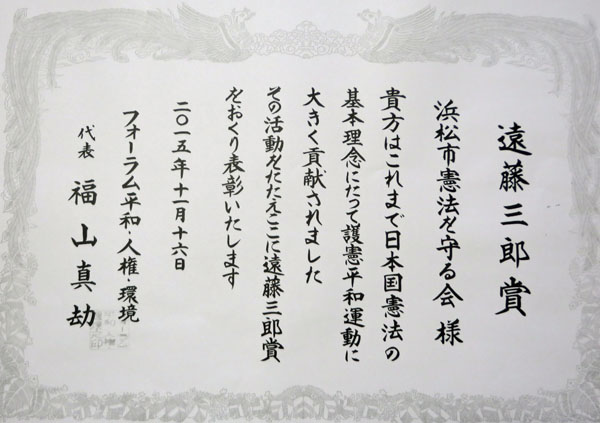 遠藤三郎賞
浜松市憲法を守る会 様
貴方はこれまで日本国憲法の
基本理念にたって護憲平和運動に
大きく貢献されました
その活動をたたえここに遠藤三郎賞
をおくり表彰いたします
二〇一五年十一月十六日
フォーラム平和・人権・環境
代表 福山真劫